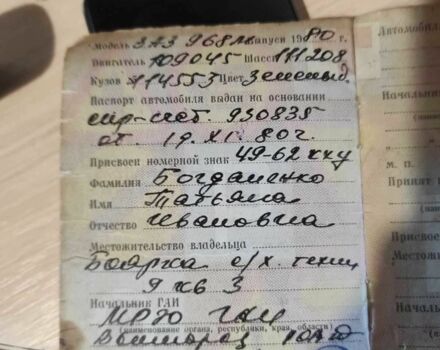 Модель ЗАЗ 968М выпуски 1980 г.
Двигатель 109045 Шасси 111.208
Кузов 114553 Цвет зеленый.
Паспорт автомобиля выдан на основании
спр-счет. 930835
от. 19. XI. 80 г.
Присвоен номерной знак 49-62 кху
Фамилия Богданенко
Имя Татьяна
Отчество Ивановна
Местожительство владельца
Боярка с/х. техни
кв 3
Начальник ГАИ
МРЭО ГАИ
(наименование органа, республики, края, области)
Автомобиль
Начальни
М. П.
Присвое
Фамили
Имя
Отчест
Местож
Начальн